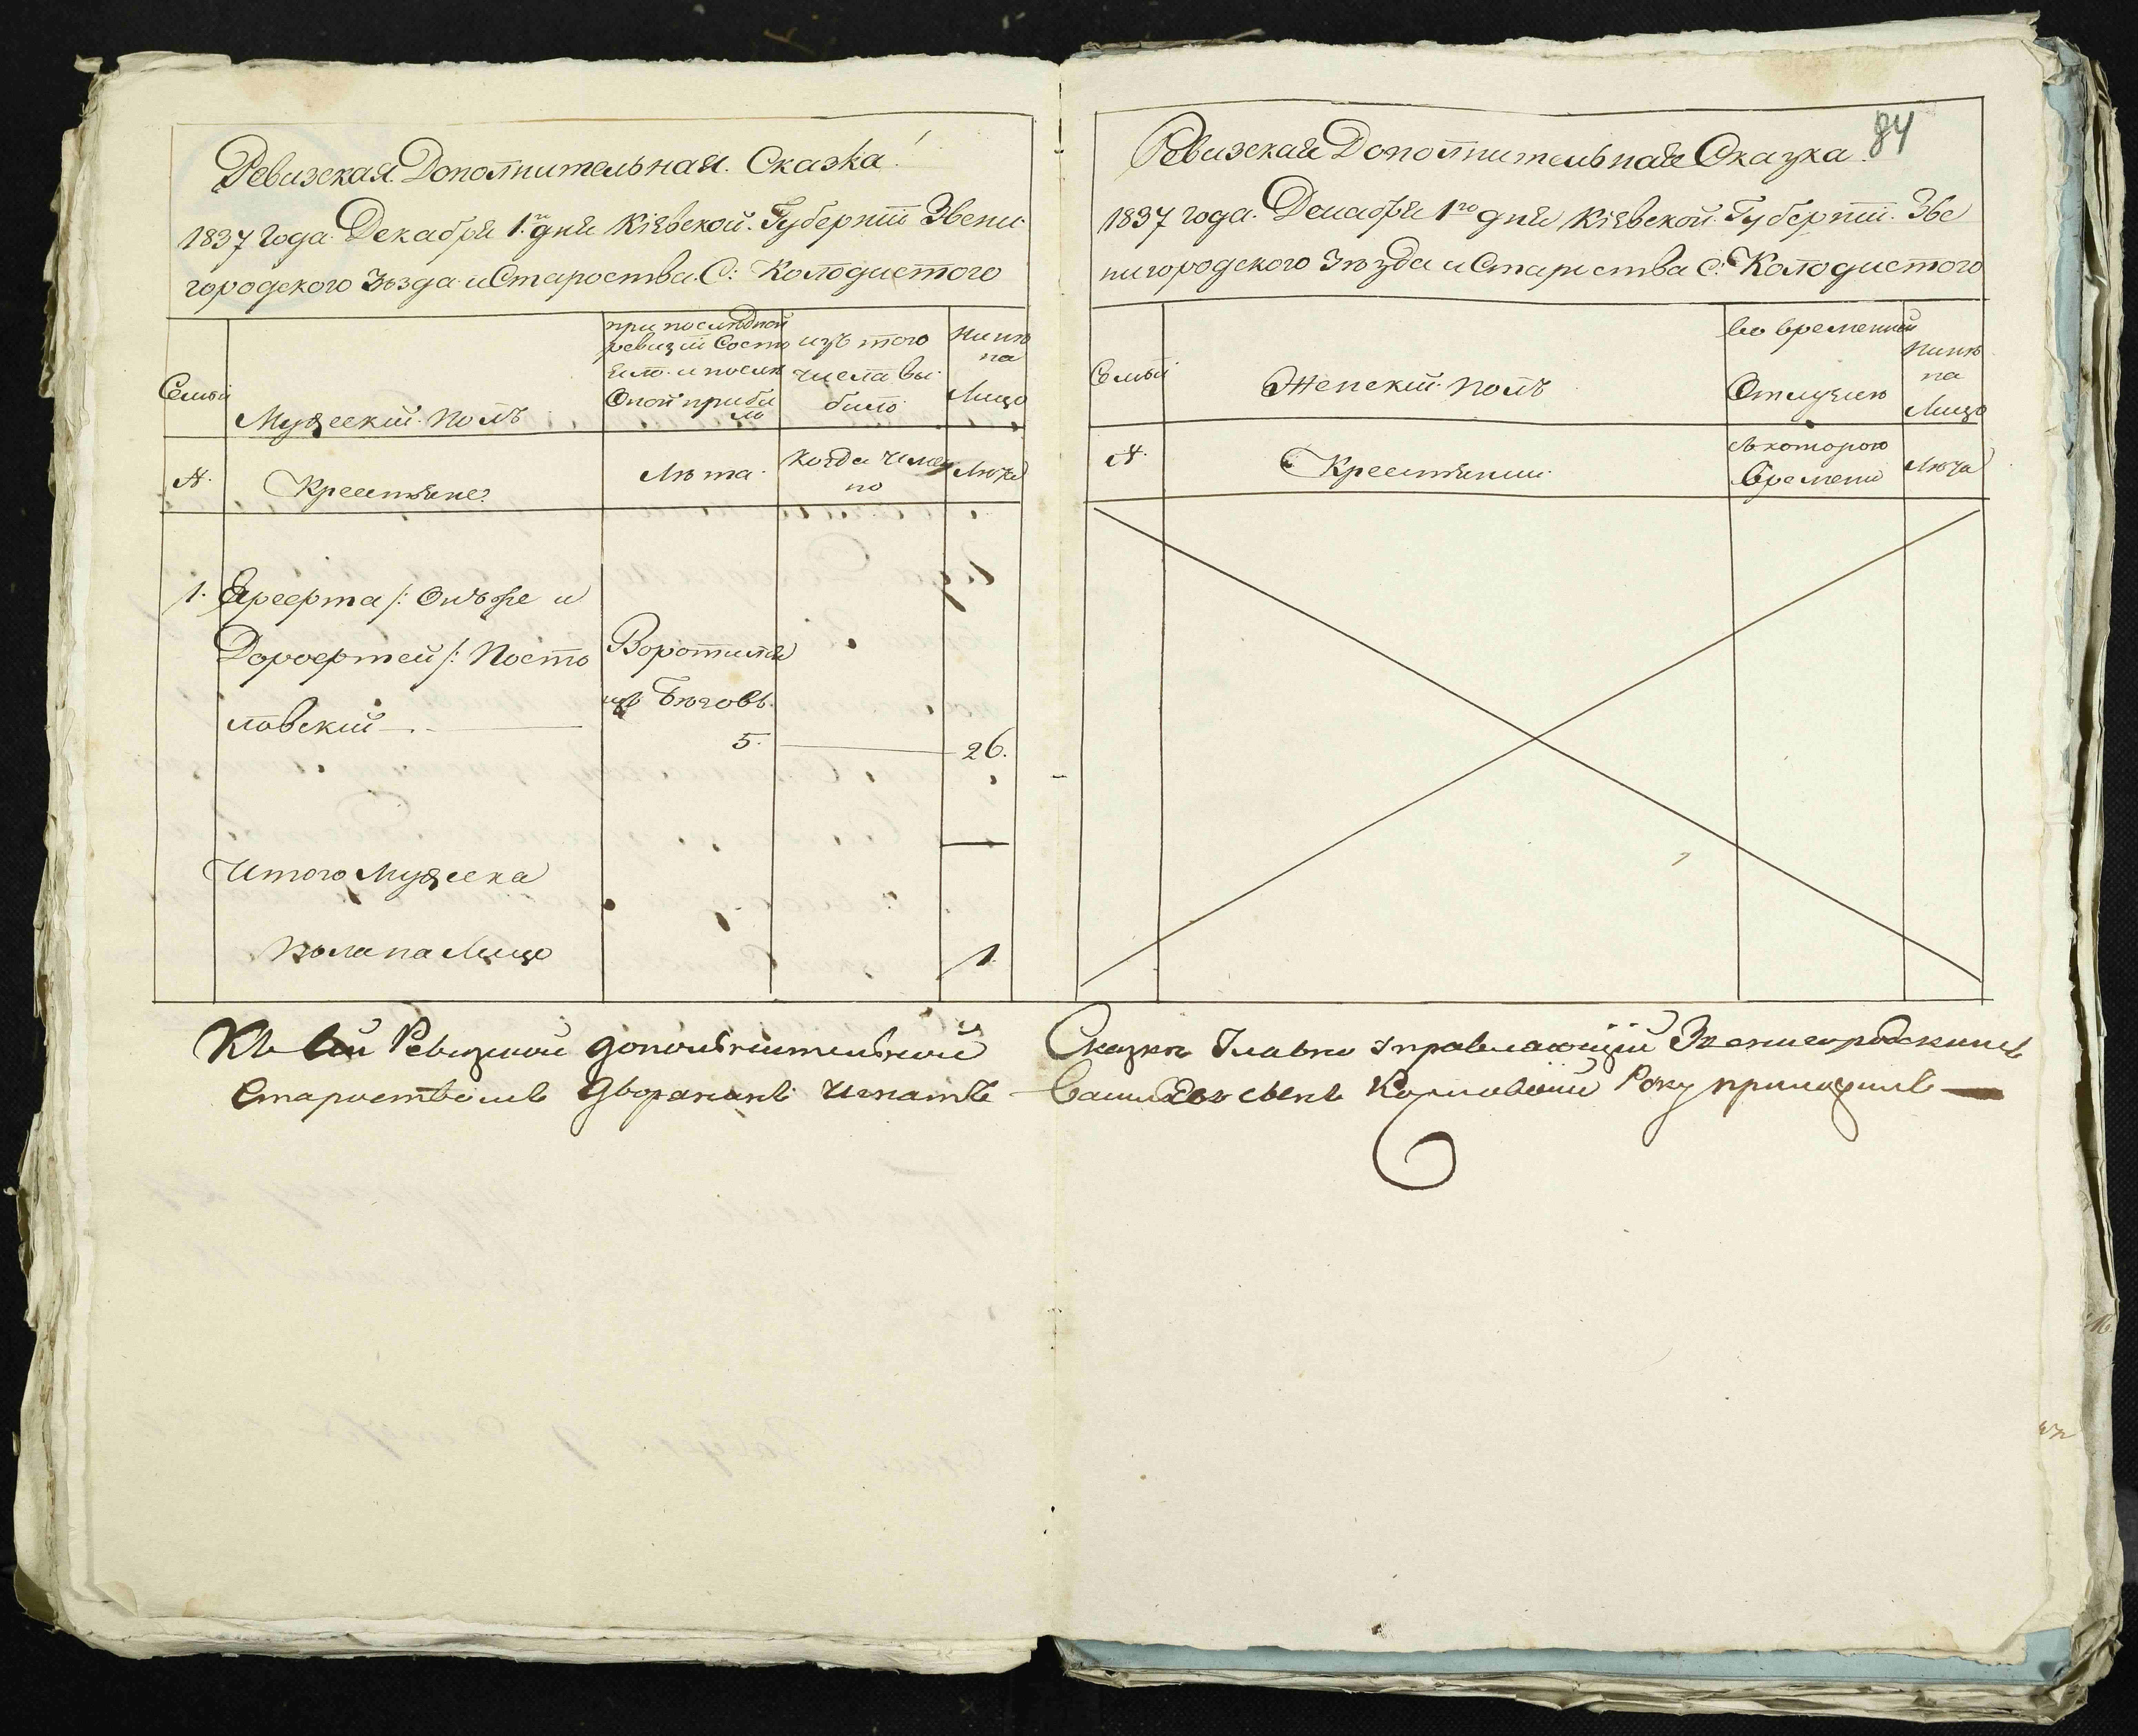 Ревизская Дополнительная Сказка
1837 года Декабря 1го дня Кіевской Губерніи Звени
городского Уѣзда и Староства С: Колодистого
Семьи
Мужеский полъ
при последной
ревизіи Состо
яло и после
Оной прибы
ло
изъ того
числа вы
было
Нынѣ
на
Лицо
№
Крестьяне
Лѣта
Когда имен
но
Лѣта
1.
/: Онъ же и
Дорофей /: Посто
ловский
Воротился
изъ Бѣговъ
5.
26.
Итого Мужеска
пола на Лицо
1
84
Ревизская Дополнительная Сказка
1837 года Декабря 1го дня Кіевской Губерніи Зве
нигородского Уѣзда и Староства С: Колодистого
Семьи
Женский полъ
во временной
Отлучке
Нынѣ
на
Лицо
№
Крестьянки
съ которого
Времени
Лѣта
Къ сей Ревизской дополнительной Сказки Главно Управляющій Звенигородскимъ
Староствомъ Дворянинъ Игнатъ Руку приложилъ